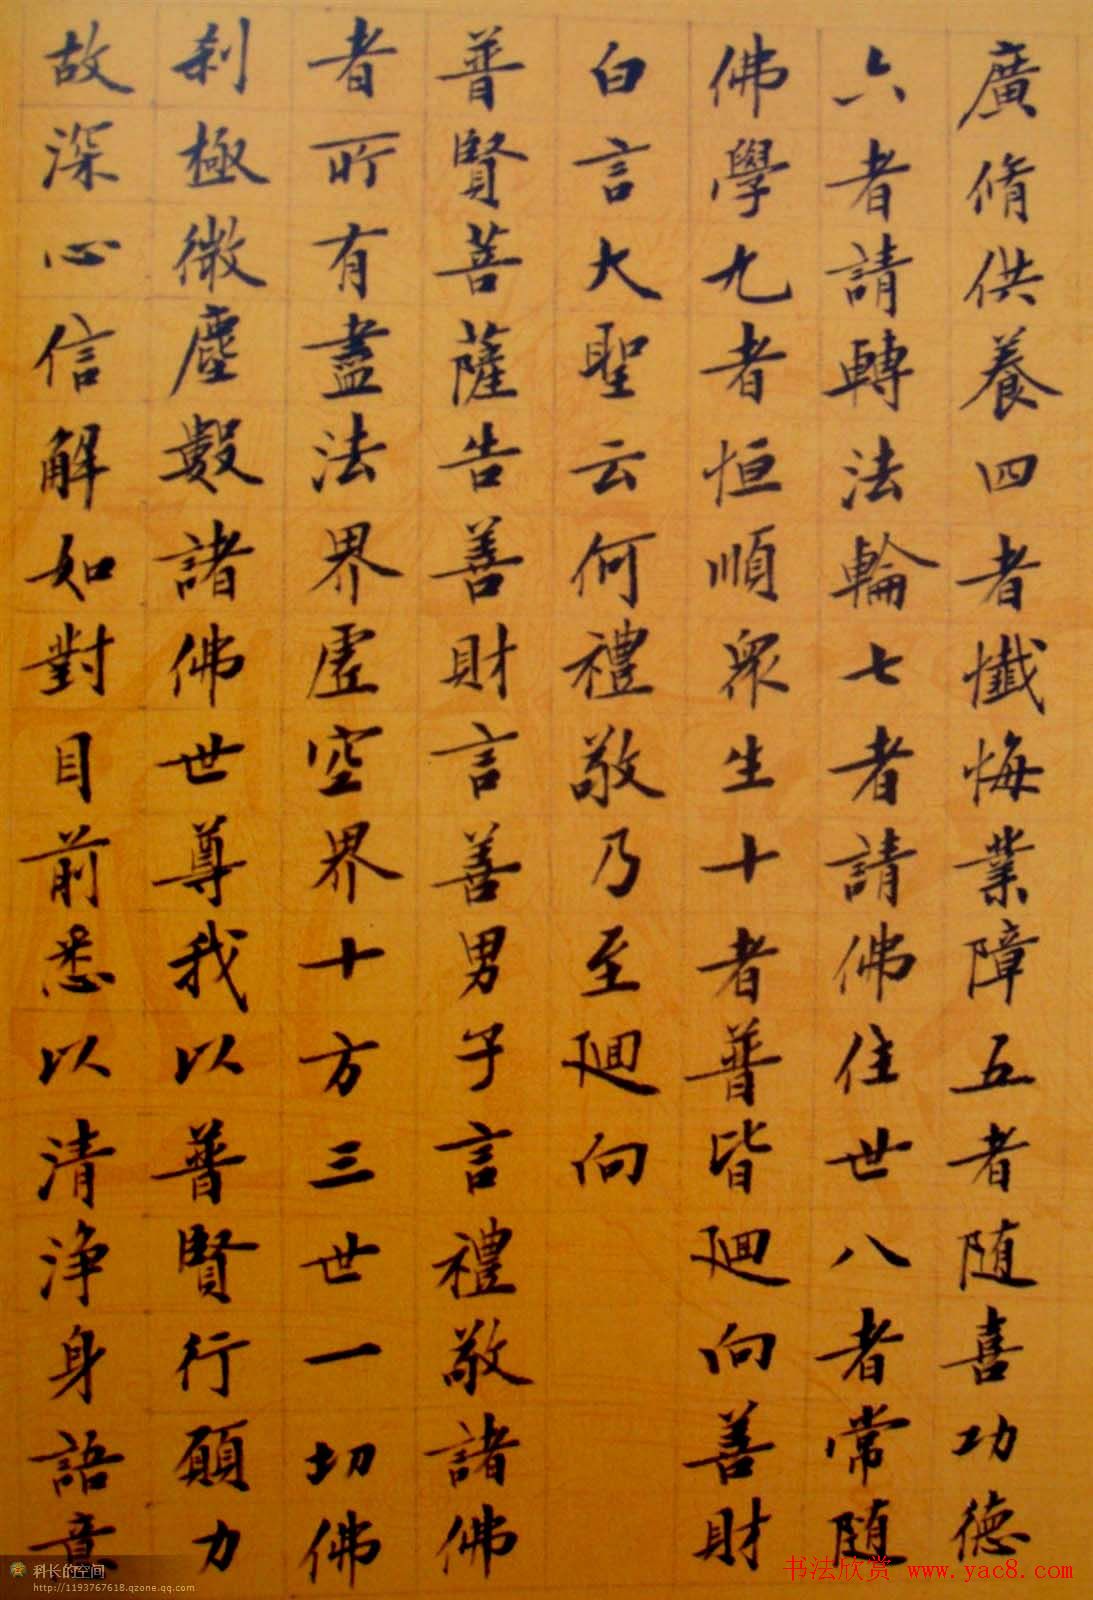 廣脩供養四者懺悔業障五者随喜功德
六者請轉法輪七者請佛住世八者常随
佛學九者恒順眾生十者普皆廻向善財
白言大聖云何禮敬乃至廻向
普賢菩薩告善財言善男子言禮敬諸佛
者所有盡法界虛空界十方三世一切佛
刹極微塵數諸佛世尊我以普賢行願力
故深心信解如對目前悉以清淨身語意
科长的空间
http://1193767618.qzone.qq.com
书法欣赏 www.yac8.com